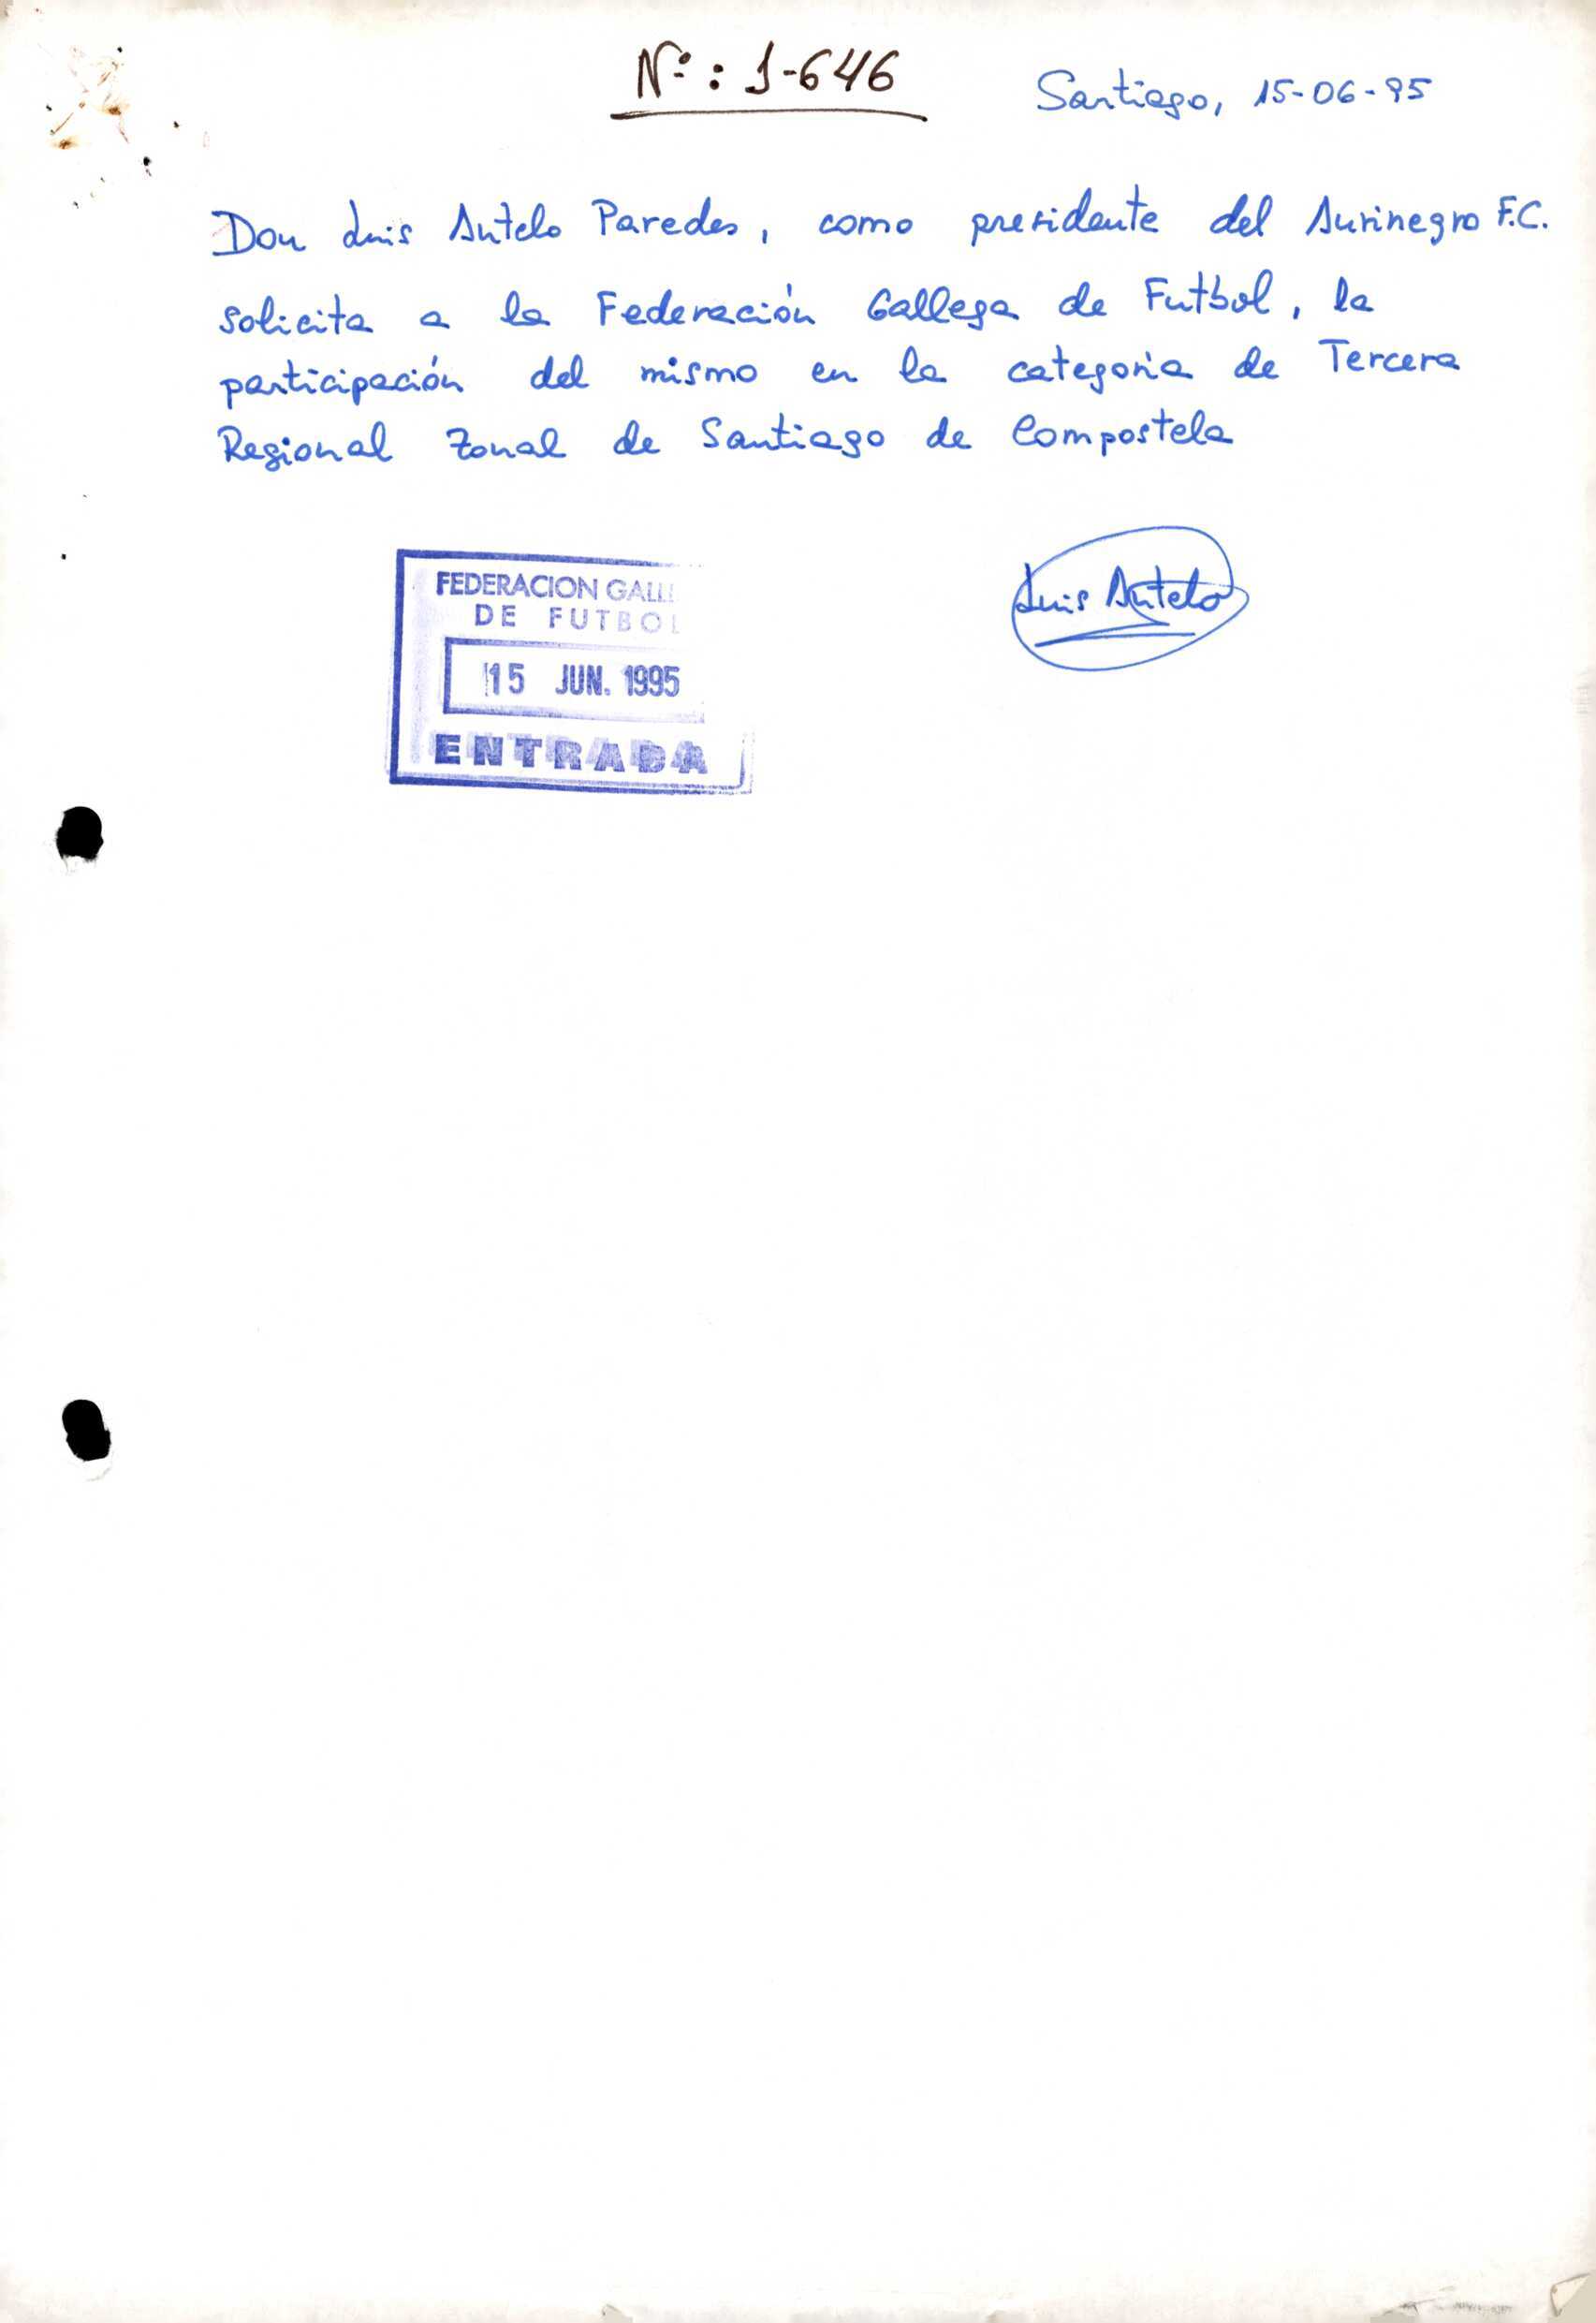 Nº: 1-646
Santiago, 15-06-95
Don Luis Antelo Paredes, como presidente del Aurinegro F.C.
solicita a la Federación Gallega de Futbol, la
participación del mismo en la categoría de Tercera
Regional Zonal de Santiago de Compostela
Luis Antelo
FEDERACION GALLE
DE FUTBOL
15 JUN. 1995
ENTRADA